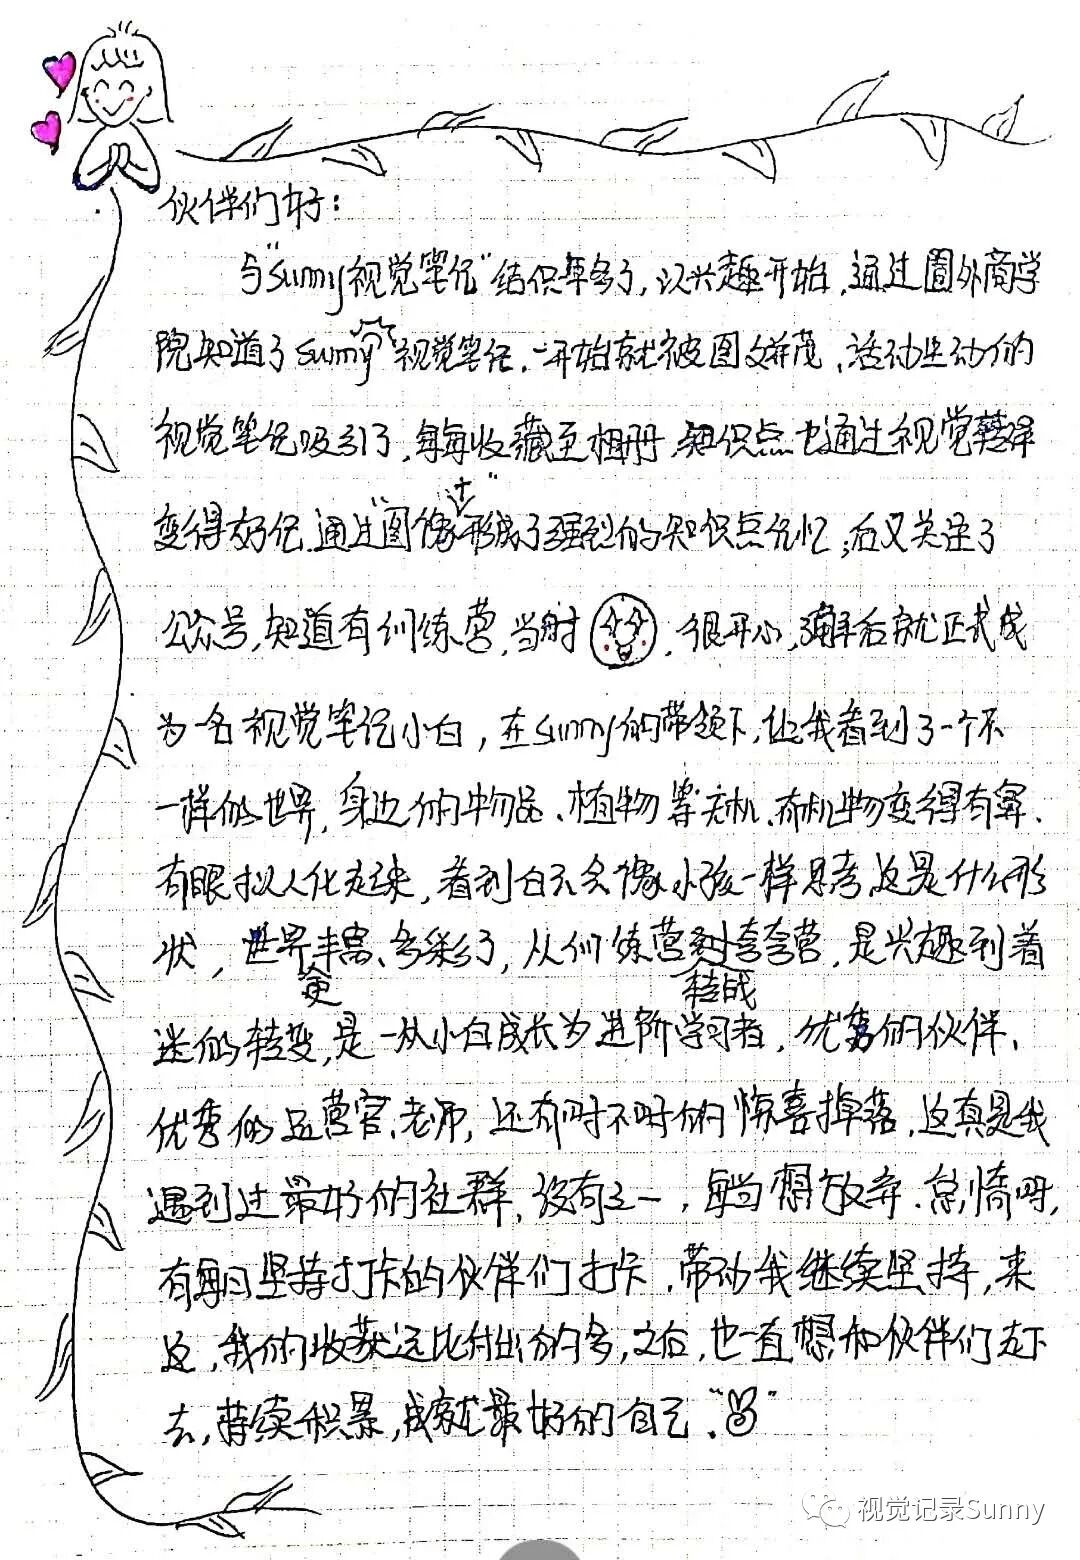 伙伴们好：
与"Sunny视觉笔记"结识年多了，从兴趣开始，通过圈外商学
院知道了Sunny视觉笔记，一开始就被图文并茂、活动生动的
视觉笔记吸引了，每每收藏至相册，知识点也通过视觉转译
变得好记，通过"图像+"形成了强烈的知识点记忆；后又关注了
公众号，知道有训练营，当时，很开心，了解后就正式成
为一名视觉笔记小白，在Sunny的带领下，让我看到了一个不
一样的世界，身边的物品、植物等无机、有机物变得有鼻、
有眼拟人化起来，看到白云会像小孩一样思考这是什么形
状，世界更丰富、多彩了，从训练营转战到青春营，是兴趣到着
迷的转变，是一从小白成长为进阶学习者，优秀的伙伴、
优秀的运营官、老师，还有时不时的惊喜掉落，这真是我
遇到过最好的社群，没有之一，每当想放弃、怠惰时，
有每日坚持打卡的伙伴们打卡，带动我继续坚持，来
这，我的收获远比付出的多，之后，也一直想和伙伴们走下
去，持续积累，成就最好的自己。
视觉记录Sunny